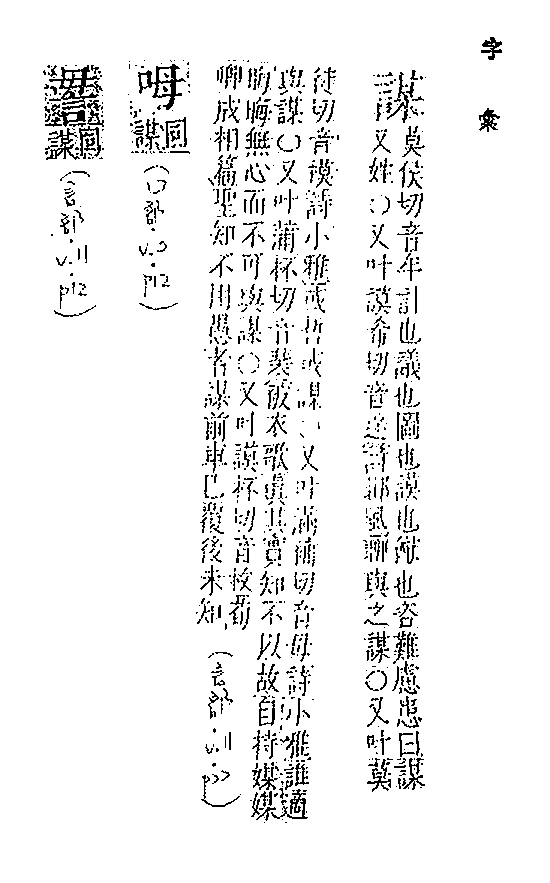 字彙
謀
莫侯切音牟計也議也圖也謨也猷也咨難慮患曰謀
又姓〇又叶謨希切音迷詩邶風聊與之謀〇又叶莫
徒切音謨詩小雅或哲或謀〇又叶滿補切音母詩小雅誰適
與謀〇又叶蒲杯切音裴 衣歌真其實知不以故自持媒媒
晦晦無心而不可與謀〇又叶謨杯切音枚荀
卿成相篇聖知不用愚者謀前車已覆後來知
(言部・v.11・p22)
呣
同謀
(口部・v.3・p12)
同謀
(言部・v.11・p12)